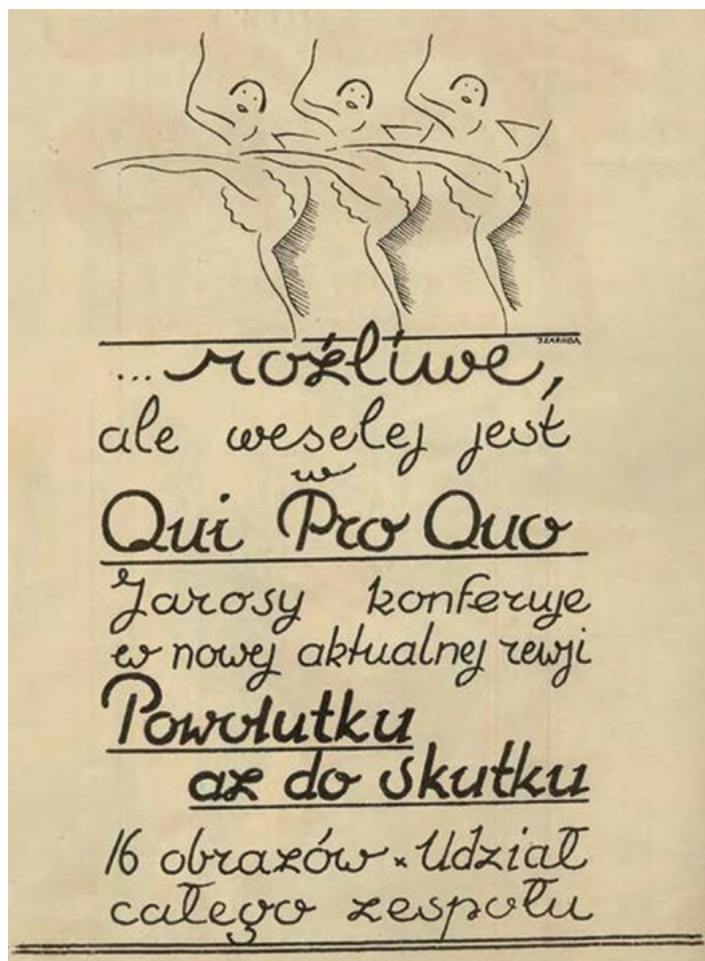 ... możliwe,
ale weselej jest
w
Qui Pro Quo
Jarosy konferuje
w nowej aktualnej rewji
Powolutku
aż do skutku
16 obrazów × Udział
całego zespołu